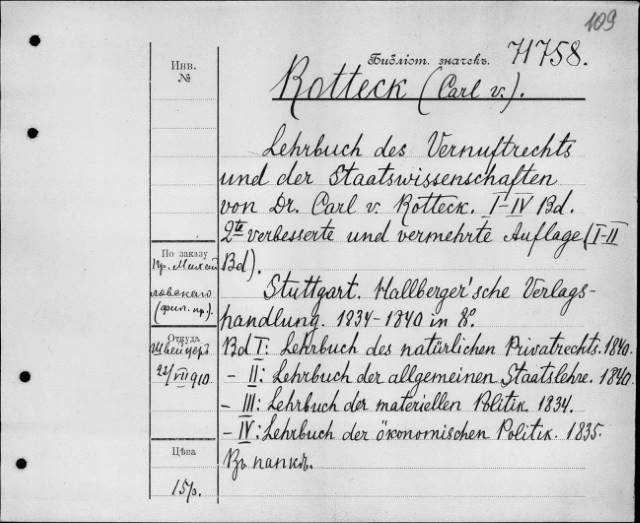 109
Библіот. значекъ. 71758.
Инв.
№
Rotteck (Carl v.).
Lehrbuch des Vernuftrechts
und der Staatswissenschaften
von Dr. Carl v. Rotteck. I-IV Bd.
2te verbesserte und vermehrte Auflage (I-II
Bd).
Stuttgart. Hallberger'sche Verlags-
handlung. 1834-1840 in 8º.
Bd I: Lehrbuch des natürlichen Privatrechts. 1840.
- II: Lehrbuch der allgemeinen Staatslehre. 1840.
- III: Lehrbuch der materiellen Politik. 1834.
- IV: Lehrbuch der ökonomischen Politik. 1835.
Въ папкѣ.
По заказу
Пр. Михай
ловскаго
(фил. пр.).
Откуда
Швейцеръ
23/VII 910
Цѣна
15р.